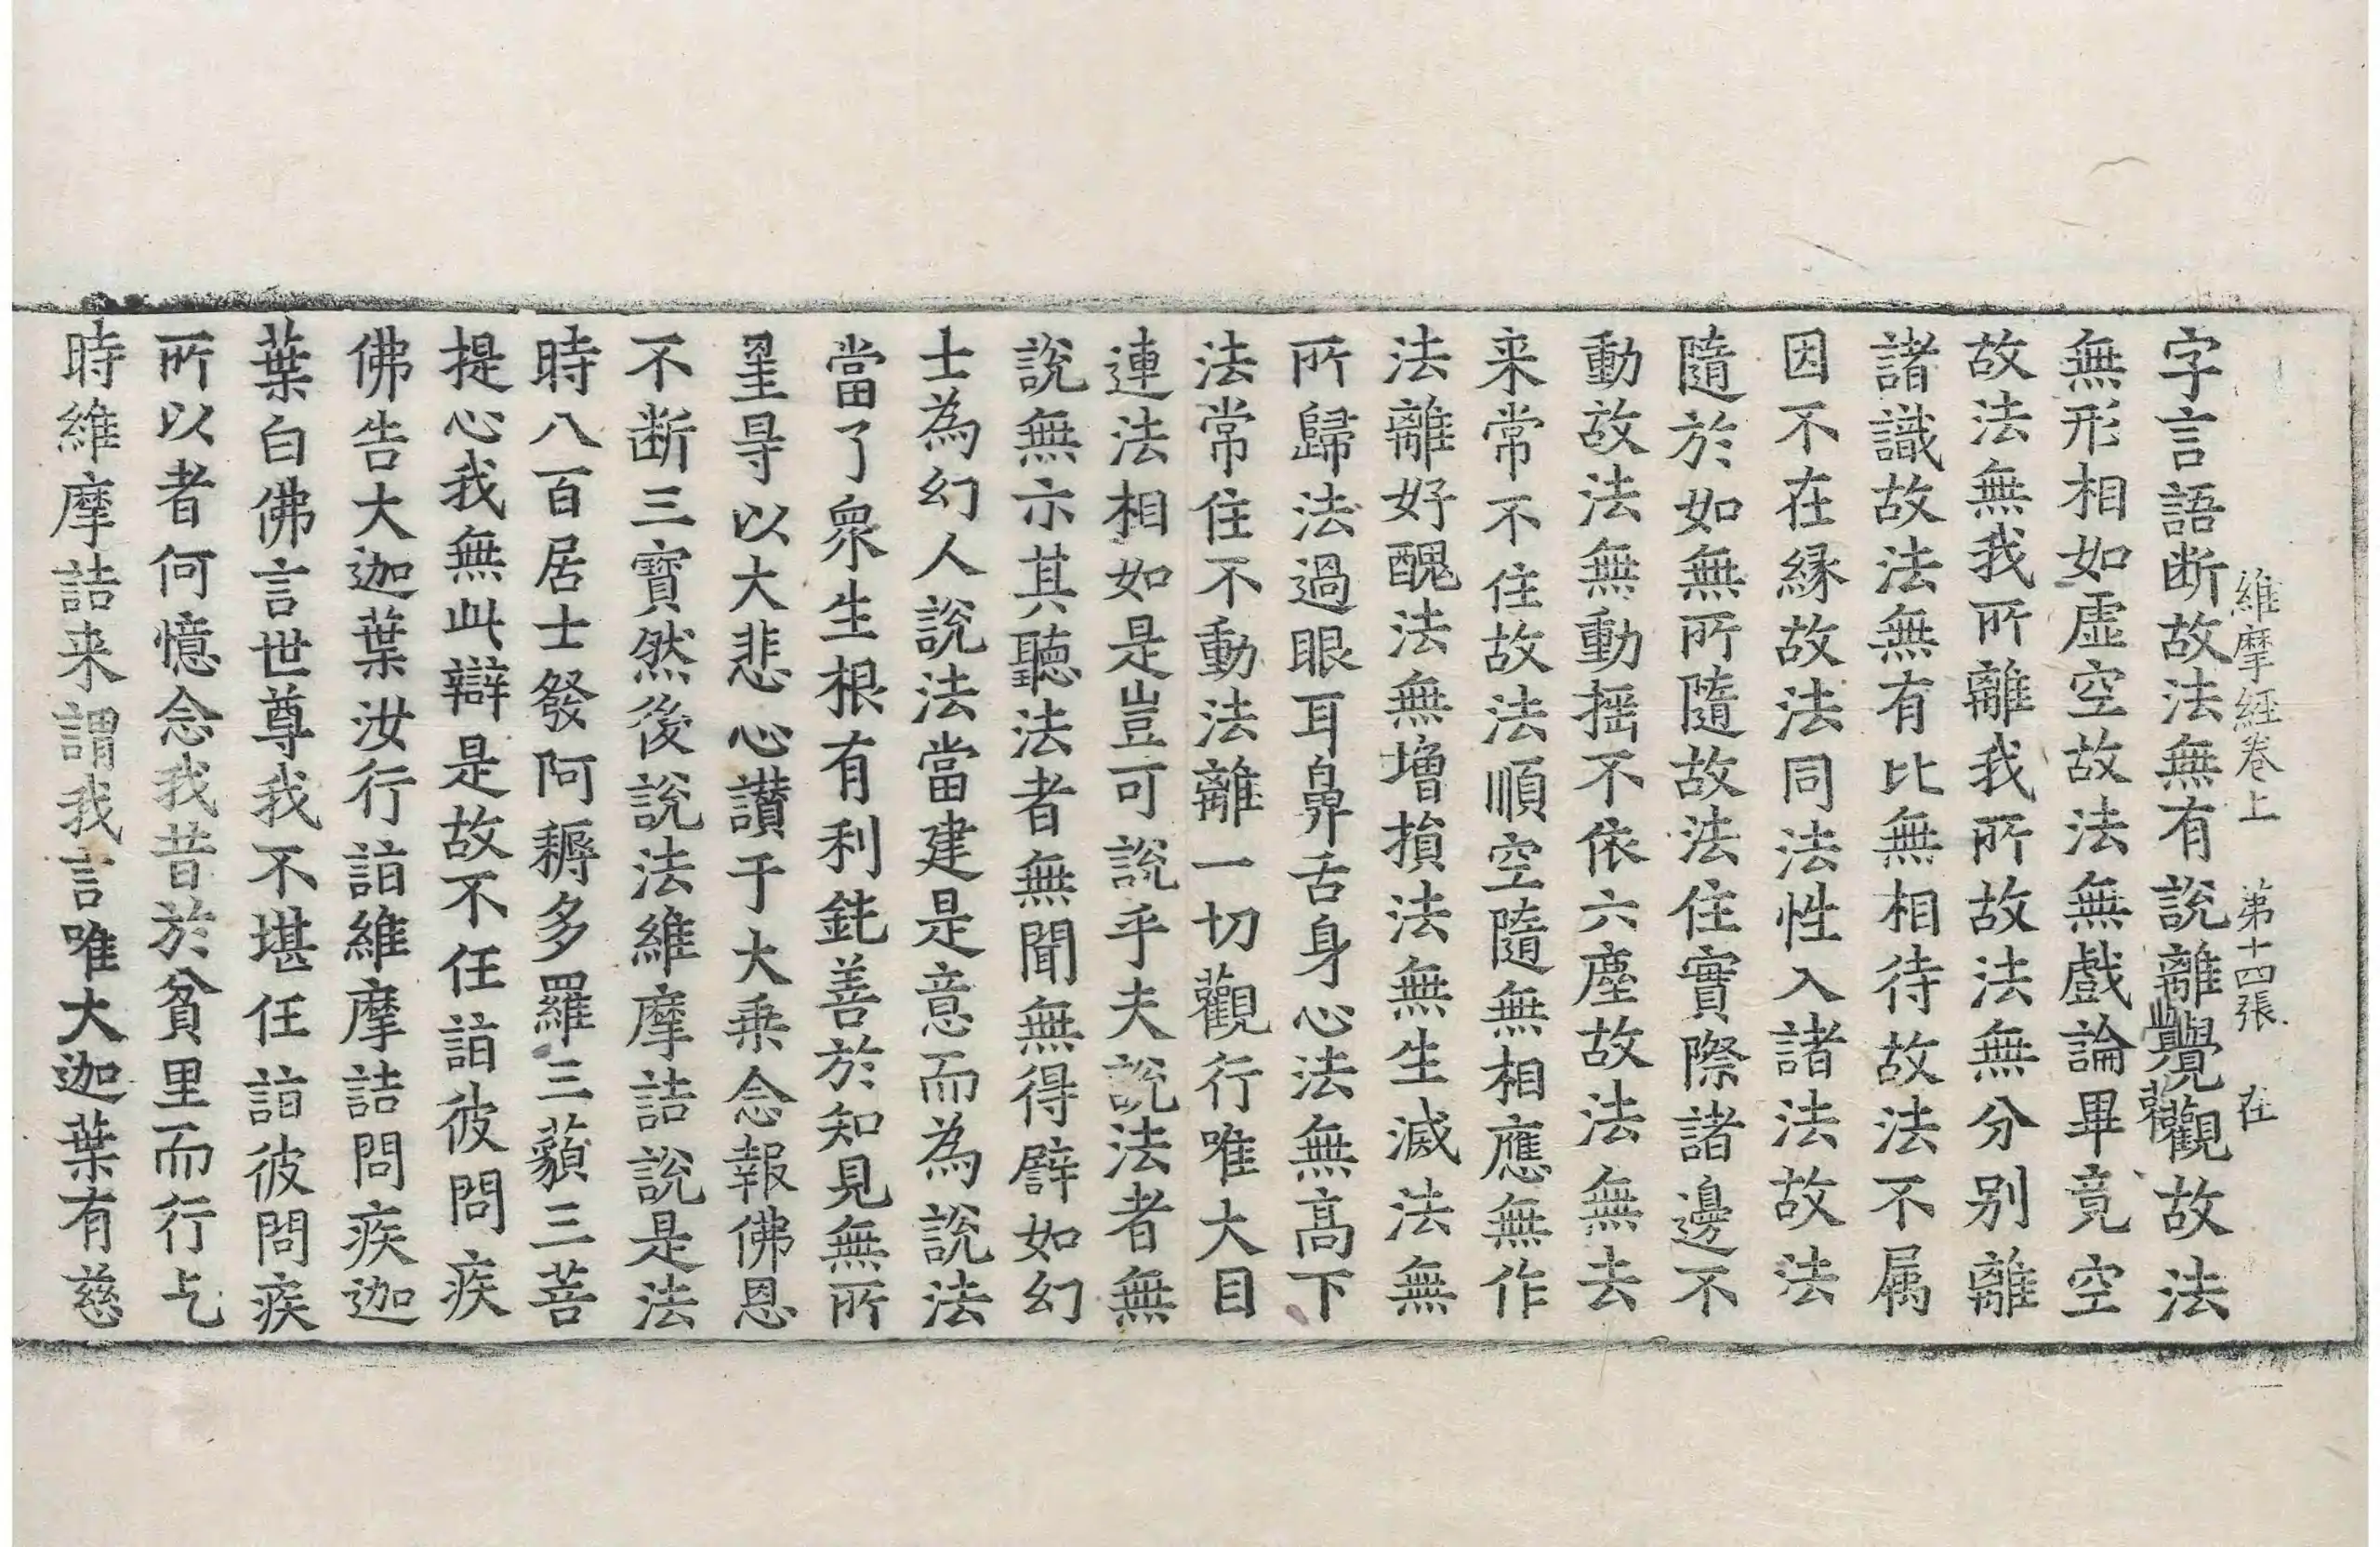 維摩經卷上　第十四張　在
字言語断故法無有說離覺觀故法
無形相如虛空故法無戲論畢竟空
故法無我所離我所故法無分別離
諸識故法無有比無相待故法不属
因不在縁故法同法性入諸法故法
隨於如無所隨故法住實際諸邊不
動故法無動揺不依六塵故法無去
来常不住故法順空隨無相應無作
法離好醜法無增損法無生滅法無
所歸法過眼耳鼻舌身心法無髙下
法常住不動法離一切觀行唯大目
連法相如是豈可說乎夫說法者無
說無示其聽法者無聞無得譬如幻
士為幻人說法當建是意而為說法
當了衆生根有利鈍善於知見無所
罣㝵以大悲心讃于大乗念報佛恩
不断三寶然後說法維摩詰說是法
時八百居士發阿耨多羅三藐三菩
提心我無此辯是故不任詣彼問疾
佛告大迦葉汝行詣維摩詰問疾迦
葉白佛言世尊我不堪任詣彼問疾
所以者何憶念我昔於貧里而行乞
時維摩詰来謂我言唯大迦葉有慈